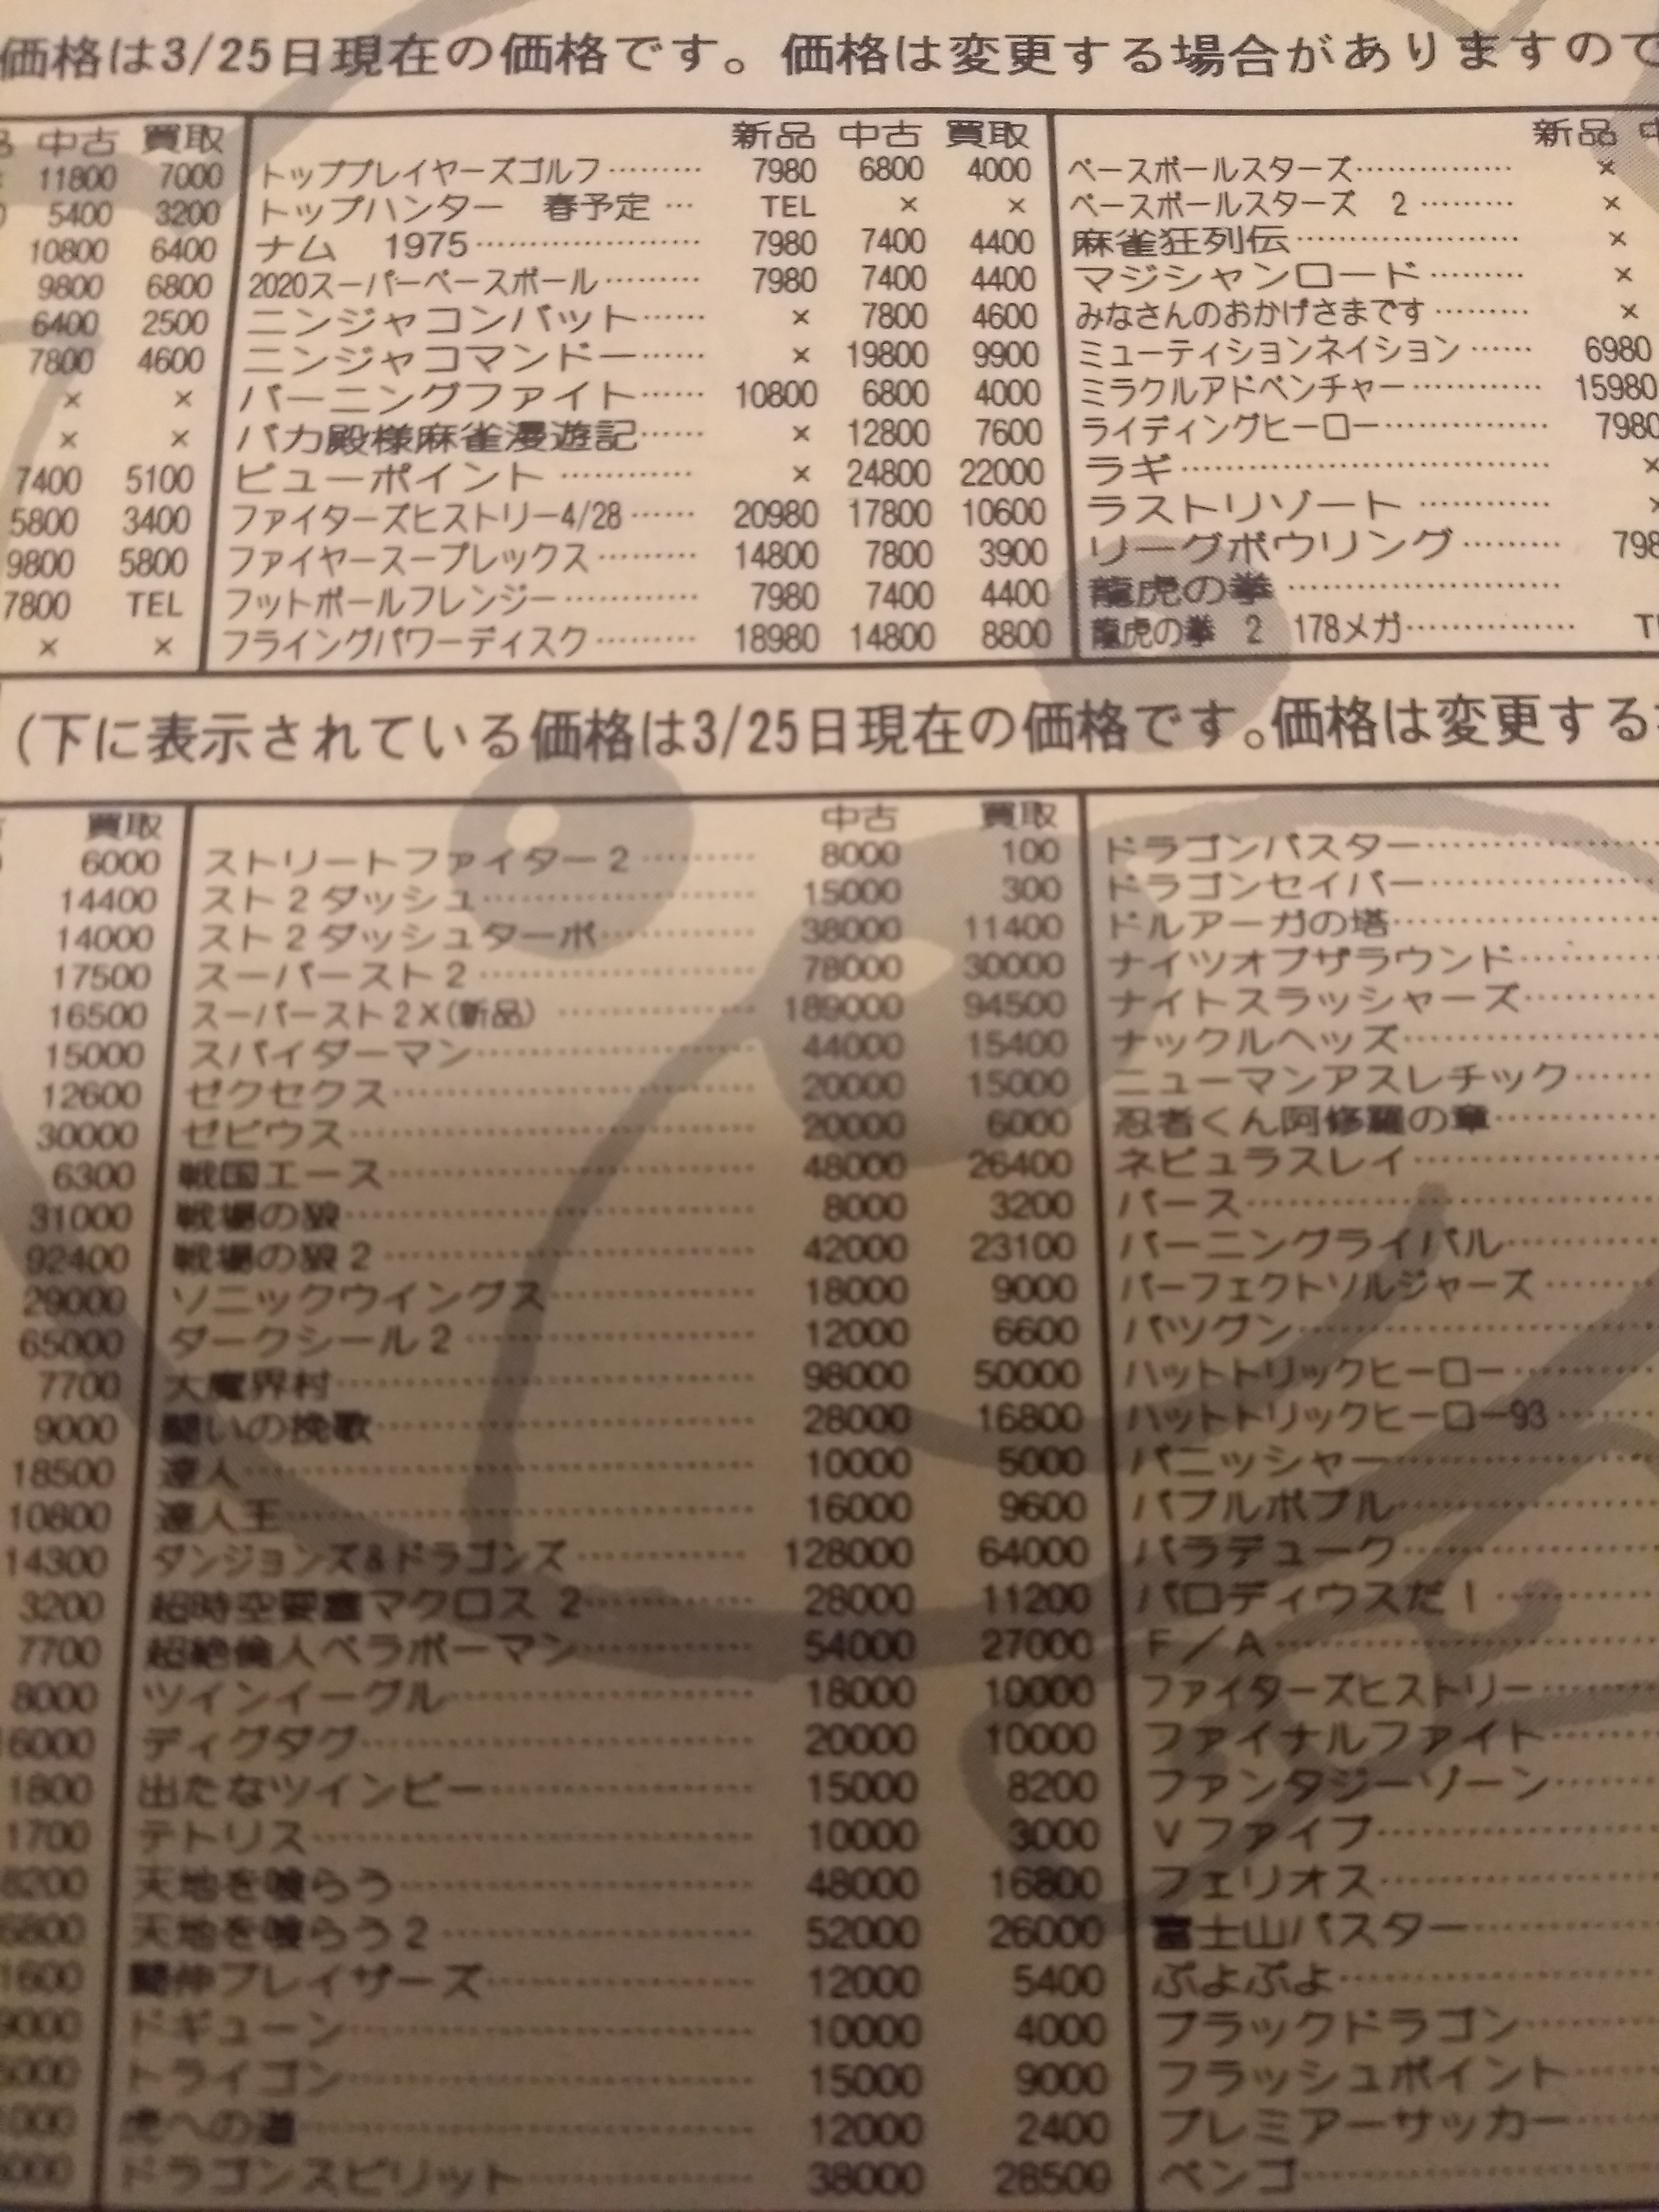 価格は3/25日現在の価格です。価格は変更する場合がありますので
中古 買取
11800 7000
5400 3200
10800 6400
9800 6800
6400 2500
7800 4600
× ×
× ×
7400 5100
5800 3400
9800 5800
7800 TEL
× ×
新品 中古 買取
トッププレイヤーズゴルフ……… 7980 6800 4000
トップハンター 春予定… TEL × ×
ナム 1975………………… 7980 7400 4400
2020スーパーベースボール……… 7980 7400 4400
ニンジャコンバット…… × 7800 4600
ニンジャコマンドー…… × 19800 9900
バーニングファイト…… 10800 6800 4000
バカ殿様麻雀漫遊記…… × 12800 7600
ビューポイント………… × 24800 22000
ファイターズヒストリー4/28…… 20980 17800 10600
ファイヤースープレックス……… 14800 7800 3900
フットボールフレンジー………… 7980 7400 4400
フライングパワーディスク……… 18980 14800 8800
新品
ベースボールスターズ…………… ×
ベースボールスターズ 2……… ×
麻雀狂列伝………………… ×
マジシャンロード……… ×
みなさんのおかげさまです……… ×
ミューティションネイション…… 6980
ミラクルアドベンチャー………… 15980
ライディングヒーロー…………… 7980
ラギ……………………………
ラストリゾート…………
リーグボウリング………
龍虎の拳………………………
龍虎の拳 2 178メガ……………
(下に表示されている価格は3/25日現在の価格です。価格は変更する
買取
6000
14400
14000
17500
16500
15000
12600
30000
6300
31000
92400
29000
65000
7700
9000
18500
10800
14300
3200
7700
8000
6000
1800
1700
8200
6800
1600
9000
中古 買取
ストリートファイター2……… 8000 100
スト2ダッシュ………………… 15000 300
スト2ダッシュターボ………… 38000 11400
スーパースト2………………… 78000 30000
スーパースト2X(新品)………… 189000 94500
スパイダーマン……………… 44000 15400
ゼクセクス…………………… 20000 15000
ゼビウス……………………… 20000 6000
戦国エース…………………… 48000 26400
戦場の狼……………………… 8000 3200
戦場の狼2……………………… 42000 23100
ソニックウイングス………… 18000 9000
ダークシール2………………… 12000 6600
大魔界村……………………… 98000 50000
闘いの挽歌…………………… 28000 16800
達人…………………………… 10000 5000
達人王………………………… 16000 9600
ダンジョンズ&ドラゴンズ……… 128000 64000
超時空要塞マクロス 2………… 28000 11200
超絶倫人ベラボーマン……… 54000 27000
ツインイーグル……………… 18000 10000
ディグダグ…………………… 20000 10000
出たなツインビー…………… 15000 8200
テトリス……………………… 10000 3000
天地を喰らう………………… 48000 16800
天地を喰らう2………………… 52000 26000
闘伸ブレイザーズ…………… 12000 5400
ドギューン…………………… 10000 4000
トライゴン…………………… 15000 9000
虎への道……………………… 12000 2400
ドラゴンスピリット………… 38000 28500
ドラゴンバスター…………
ドラゴンセイバー…………
ドルアーガの塔……………
ナイツオブザラウンド……
ナイトスラッシャーズ……
ナックルヘッズ……………
ニューマンアスレチック……
忍者くん阿修羅の章………
ネビュラスレイ……………
バース………………………
バーニングライバル………
パーフェクトソルジャーズ……
バツグン……………………
ハットトリックヒーロー……
ハットトリックヒーロー93……
パニッシャー………………
バブルボブル………………
バラデューク………………
パロディウスだ!……………
F/A…………………………
ファイターズヒストリー……
ファイナルファイト………
ファンタジーゾーン………
Vファイブ…………………
フェリオス…………………
富士山バスター……………
ぷよぷよ……………………
ブラックドラゴン…………
フラッシュポイント………
プレミアーサッカー………
ペンゴ………………………